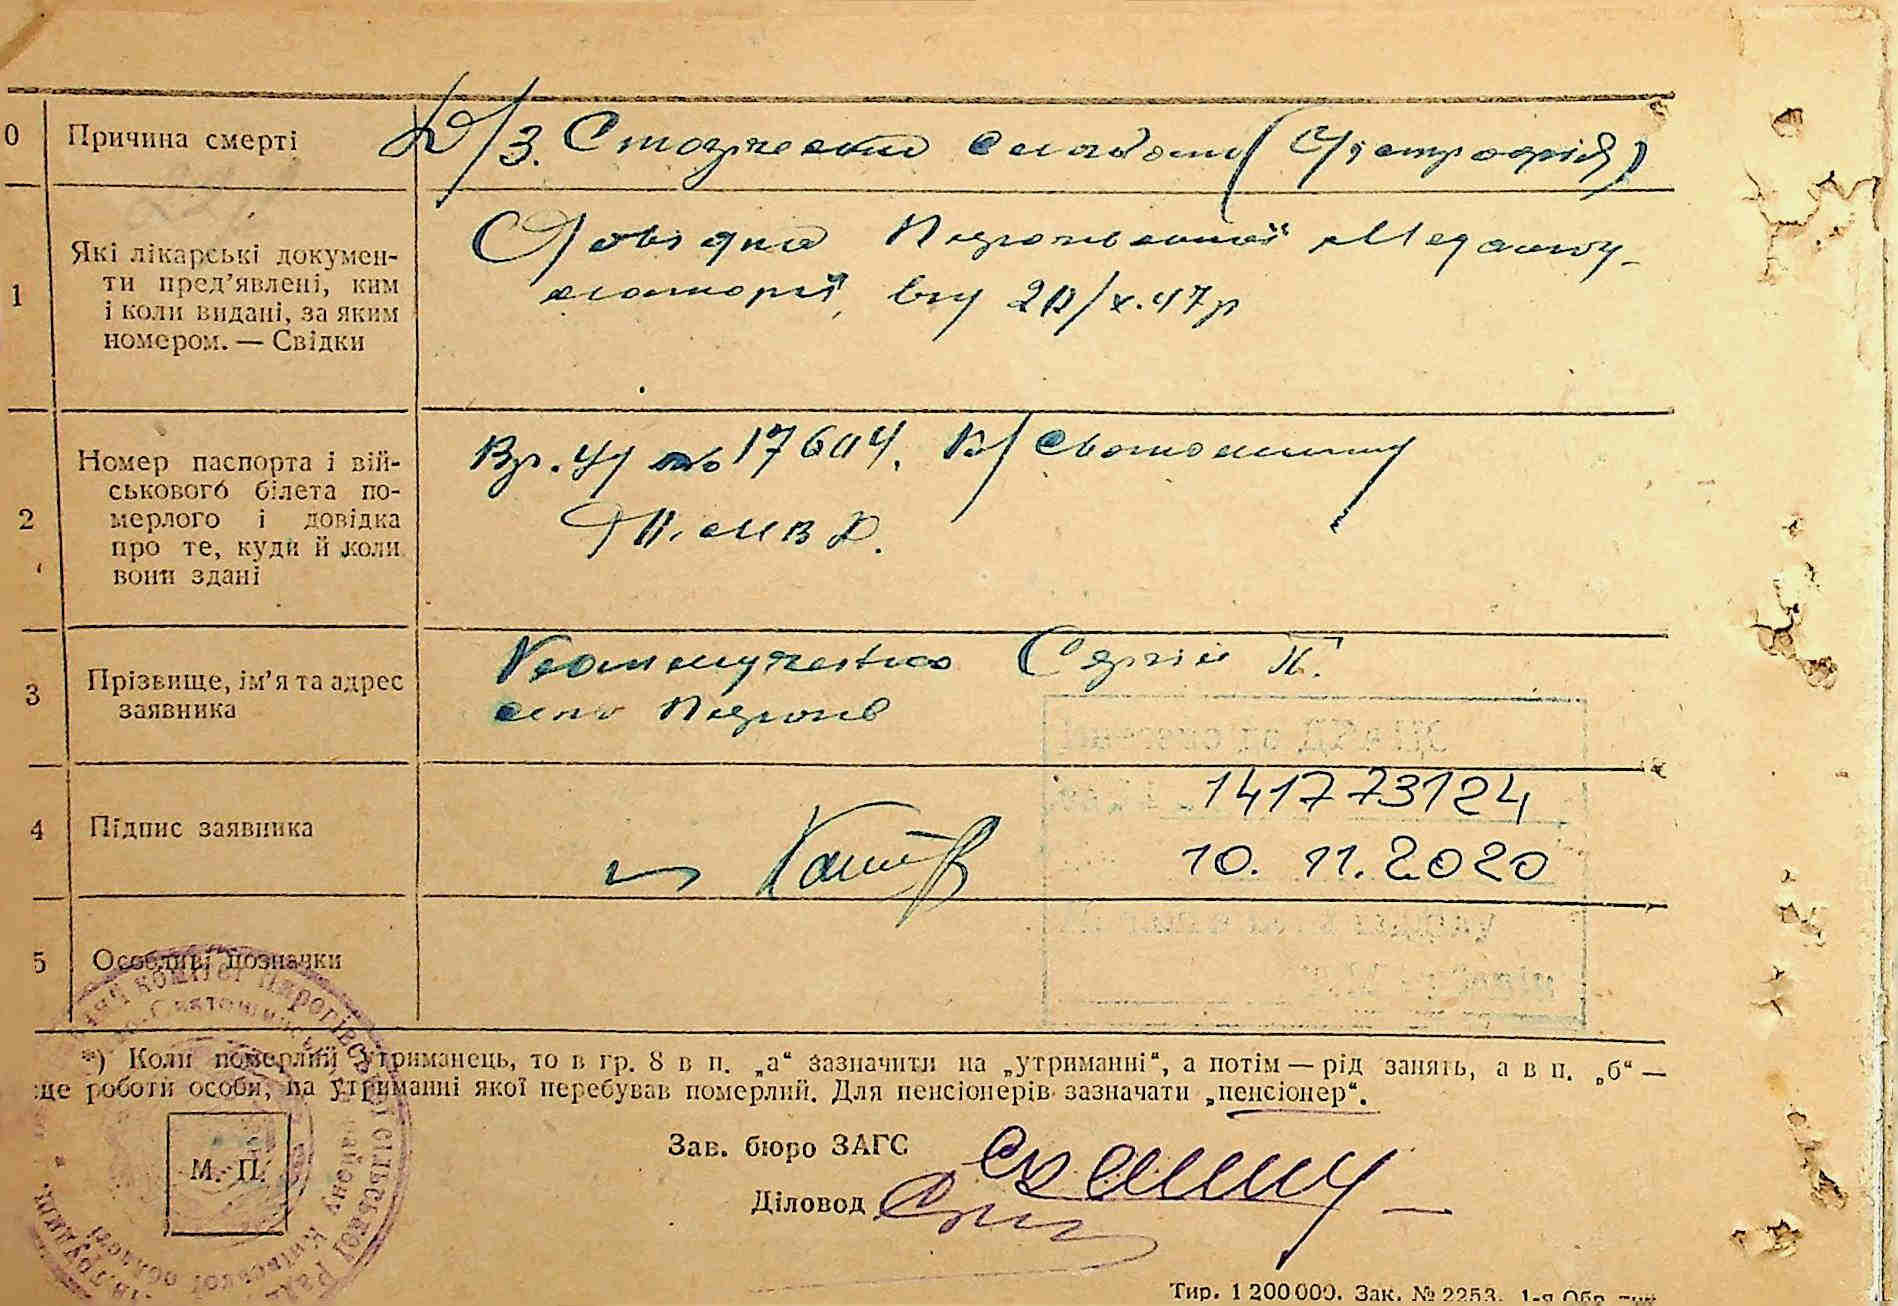 0 Причина смерті
Д/З. Старческая слабость (Дистрофія)
1 Які лікарські докумен-
ти пред’явлені, ким
і коли видані, за яким
номером. — Свідки
Довідка Пирогівської Медамбу-
латорії, від /X.47р
2 Номер паспорта і вій-
ськового білета по-
мерлого і довідка
про те, куди й коли
вони здані
№ 17604.
3 Прізвище, ім’я та адрес
заявника
Сергій П.
село Пирогів
4 Підпис заявника
141773124
10. 11. 2020
5 Особливі позначки
*) Коли померлий утриманець, то в гр. 8 в п. „а“ зазначити на „утриманні“, а потім — рід занять, а в п. „б“ —
ще роботи особи, на утриманні якої перебував померлий. Для пенсіонерів зазначати „пенсіонер“.
Зав. бюро ЗАГС
Діловод
М. П.
комітет Пирогівської сільської Рад
району Київської області
Тир. 1 200 000. Зак. № 2253. 1-я Обр.